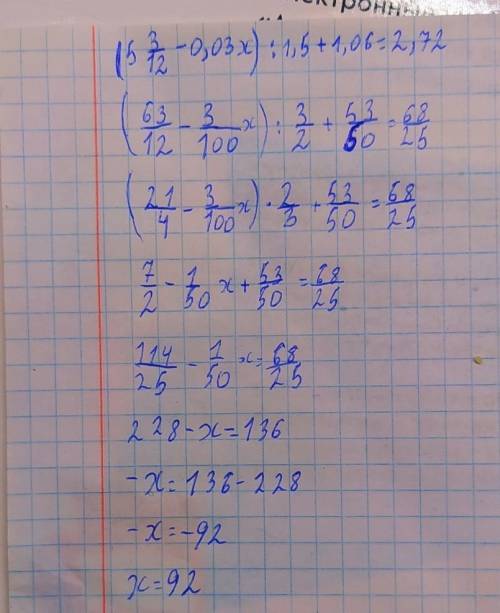 (5 3/12 - 0,03x) : 1,5 + 1,06 = 2,72
(63/12 - 3/100 x) : 3/2 + 53/50 = 68/25
(21/4 - 3/100 x) · 2/3 + 53/50 = 68/25
7/2 - 1/50 x + 53/50 = 68/25
114/25 - 1/50 x = 68/25
228 - x = 136
-x = 136 - 228
-x = -92
x = 92